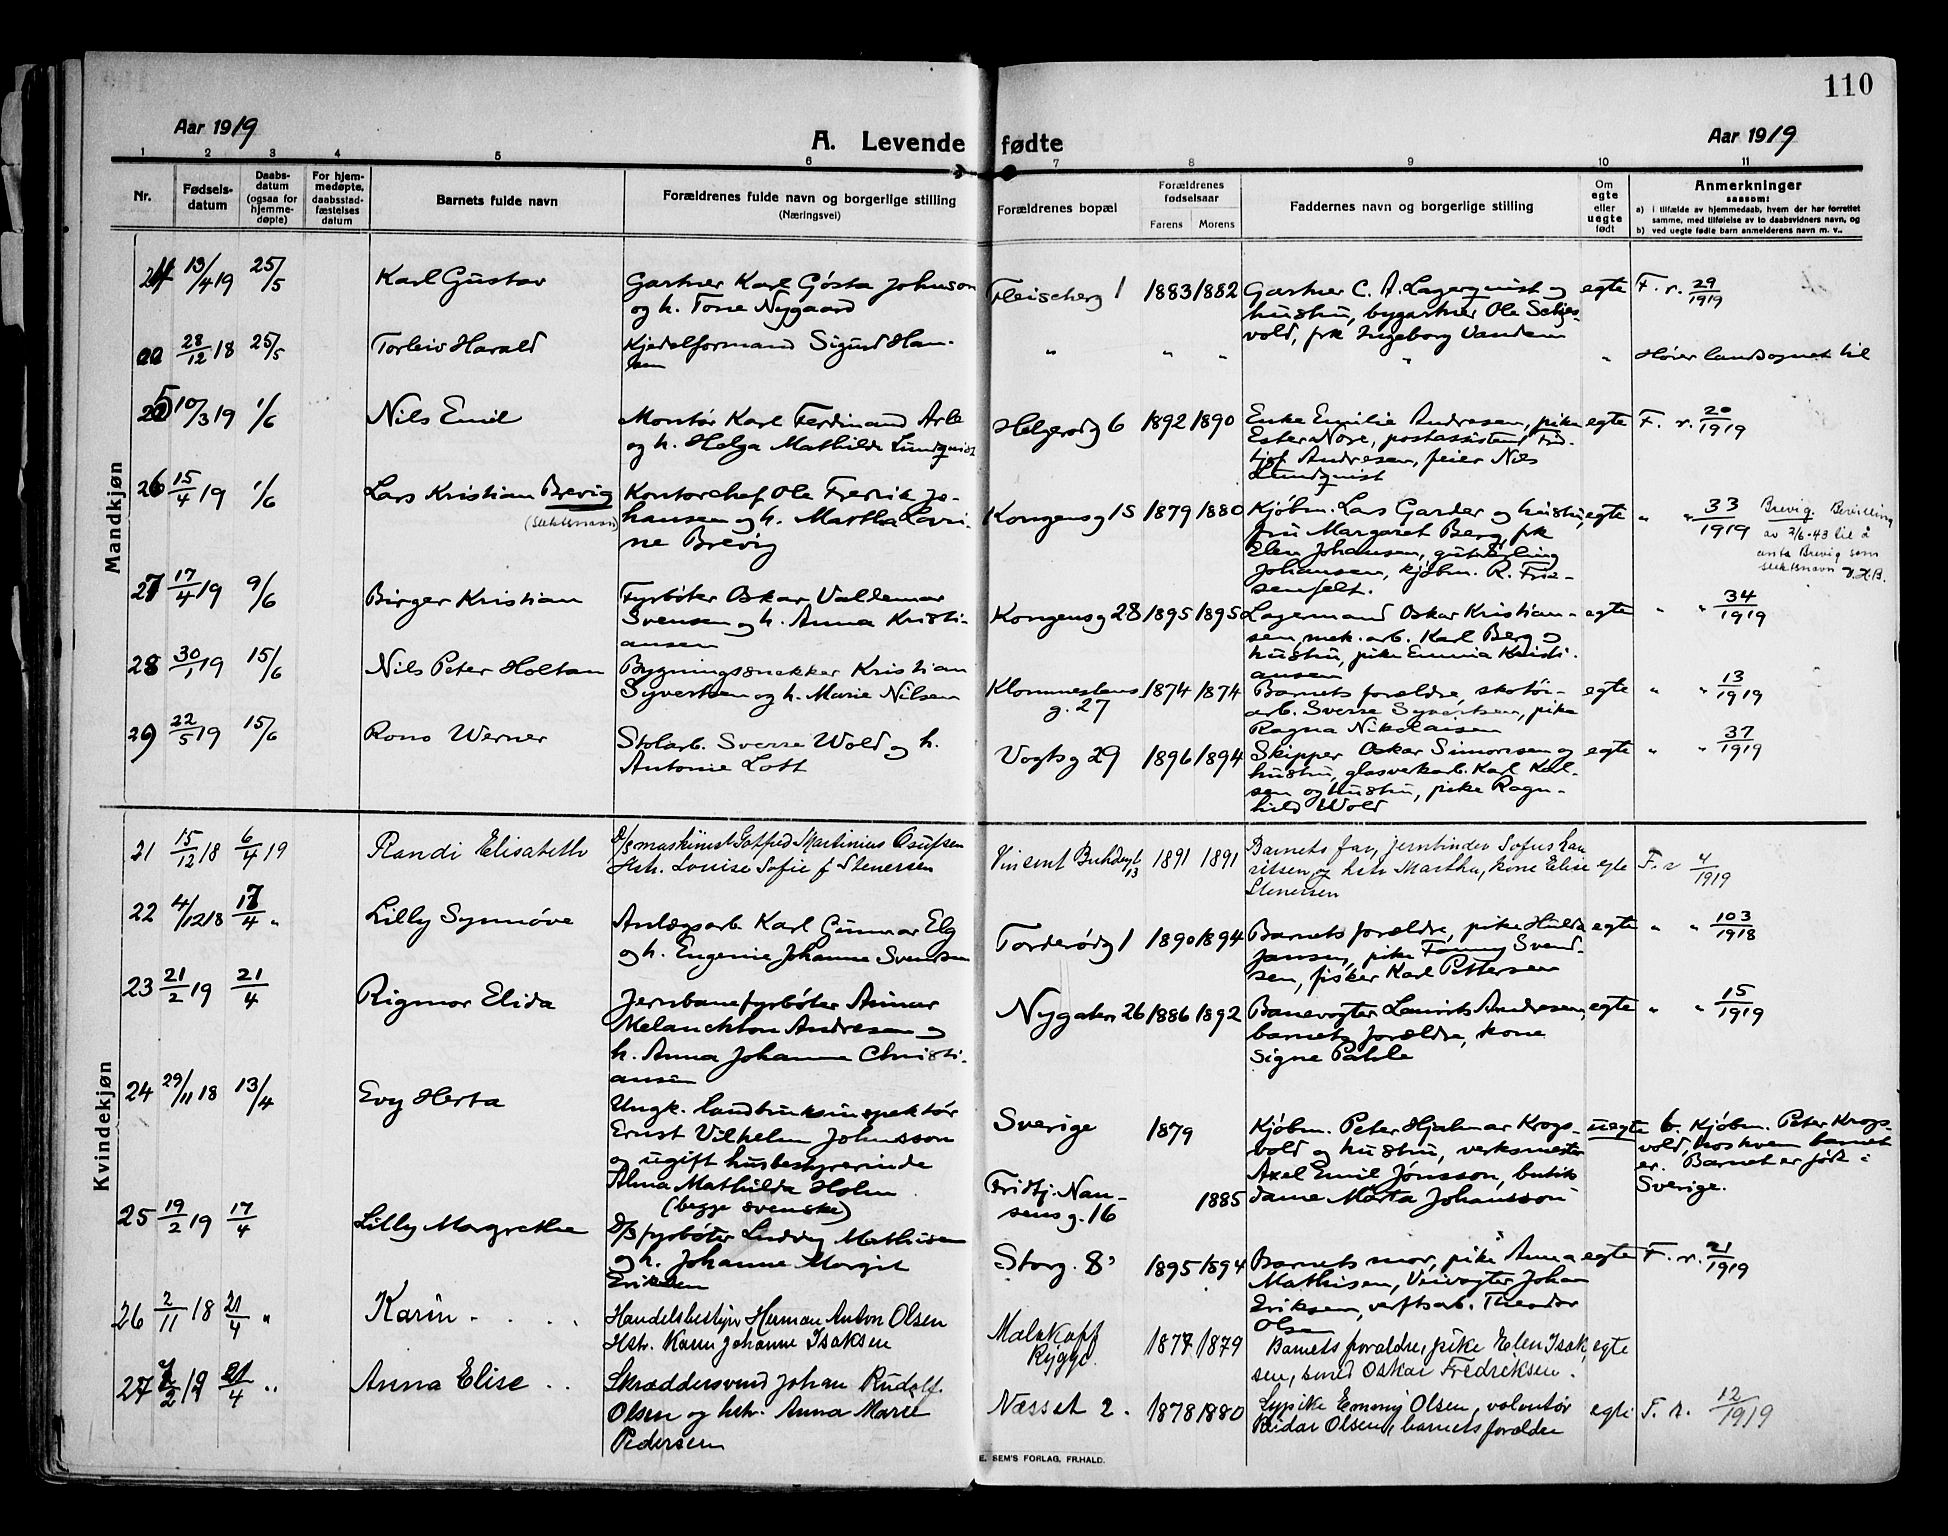 110
Aar 1919
A. Levende fødte
Aar 1919
1 2 3 4 5 6 7 8 9 10 11
Nr.
Fødsels-
datum
Daabs-
datum
(ogsaa for
hjemme-
døpte)
For hjem-
medøpte,
daabsstad-
fæstelses
datum
Barnets fulde navn
Forældrenes fulde navn og borgerlige stilling
(Næringsvei)
Forældrenes bopæl
Forældrenes
fødselsaar
Farens Morens
Faddernes navn og borgerlige stilling
Om
egte
eller
uegte
født
Anmerkninger
saasom:
a) i tilfælde av hjemmedaab, hvem der har forrettet
samme, med tilføielse av to daabsvidners navn, og
b) ved uegte fødte barn anmelderens navn m. v..
Mandkjøn
24 13/4 19 25/5 Karl Gustav
Gartner Karl Gösta Johnson
og h. Tone Nygaard
Fleischerg 1 1883 1882
Gartner C. A. Lagerquist og
hustru, bygartner Ole Schjes-
vold, frk Ingeborg Vandem
egte F. r. 29/1919
28/12 18 25/5 Torleiv Harald
Kjedelformand Sigurd Han-
sen
" " " " "
Hører landsognet til
25 10/3 19 1/6 Nils Emil
Montør Karl Ferdinand Arle
og h. Helga Mathilde Lundquist
Helgerødg 6 1892 1890
Enke Emilie Andresen, pike
Ester Nöre, postassistent Frid-
tjof Andresen, feier Nils
Lundquist
egte F. r. 20/1919
26 15/4 19 1/6 Lars Kristian Brevig
(slektsnavn)
Kontorchef Ole Fredrik Jo-
hansen og h. Martha Lovi-
ne Brevig
Kongensg 15 1879 1880
Kjøbm. Lars Garder og hustru,
fru Margaret Berg, frk
Elen Johansen, gutværling
Johansen, kjøbm. R. Frie-
senfelt.
egte " " 33/1919
Brevig. Bevilling
av 2/6-43 til å
anta Brevig som
slektsnavn
27 17/4 19 9/6 Birger Kristian
Fyrbøter Oskar Valdemar
Svensen og h. Anna Kristi-
ansen
Kongensg 28 1895 1895
Lagermand Oskar Kristian-
sen, mek. arb. Karl Berg og
hustru, pike Emma Kristi-
ansen
egte " " 34/1919
28 30/1 19 15/6 Nils Peter Holtan
Bygningssnekker Kristian
Syvertsen og h. Marie Nilsen
Klommestens
g. 27 1874 1874
Barnets forældre, skotøi-
arb. Sverre Syvertsen, pike
Ragna Nikolaisen
egte " " 13/1919
29 22/5 19 15/6 Rono Werner
Stolarb. Sverre Wold og h.
Antonie Lott
Vogtsg 29 1896 1894
Skipper Oskar Simonsen og
hustru, glasverkarb. Karl Karl-
sen og hustru, pike Ragn-
hild Wold
egte " " 37/1919
Kvindekjøn
21 15/12 18 6/4 19 Randi Elisabeth
D/S maskinist Gotfred Martinius Osufsen
Hstr. Louise Sofie f Stenersen
Vincent Buddesgt
13 1891 1891
Barnets far, jernbinder Sofus Lau-
ritsen og hstr Martha, kone Elise
Stenersen
egte F. r 4/1919
22 4/12 18 17/4 " Lilly Synnøve
Anlægsarb. Karl Gunnar Elg
og h. Eugenie Johanne Svendsen
Torderødg 1 1890 1894
Barnets forældre, pike Hulda
Jansen, pike Fanny Svend-
sen, fisker Karl Pettersen
egte " " 103/1918
23 21/2 19 21/4 Rigmor Elida
Jernbanefyrbøter Asmar
Melanchton Andresen og
h. Anna Johanne Christi-
ansen
Nygaten 26 1886 1892
Banevogter Laurits Andresen,
barnets forældre, kone
Signe Pahle
egte " " 15/1919
24 29/11 18 13/4 Evy Herta
Ungk. landbruksinspektør
Ernst Vilhelm Johnsson
og ugift husbestyrerinde
Alma Mathilda Holm
(begge svenske)
Sverige 1879
Fridtj. Nan-
sensg. 16 1885
Kjøbm. Peter Hjalmar Krogs-
vold og hustru, verksmester
Axel Emil Jönsson, butik-
dame Märta Johansson
uegte b. Kjøbm. Peter Krogs-
vold, hos hvem barnet
er. Barnet er født i
Sverige.
25 19/2 19 17/4 Lilly Margrethe
D/S fyrbøter Ludvig Mathisen
og h. Johanne Margit
Eriksen
Storg. 8 1895 1894
Barnets mor, pike Anna
Mathisen, Veivogter Johan
Eriksen, verftsarb. Theodor
Olsen
egte F. r. 21/1919
26 2/11 18 21/4 " Karin
Handelsbestyrer Herman Anton Olsen
Hstr. Karen Johanne Isaksen
Malakoff
Rygge. 1877 1879
Barnets foraldre, pike Elen Isak-
sen, svend Oskar Fredriksen.
egte
27 2/2 19 21/4 " Anna Elise
Skræddersvend Johan Rudolf
Olsen og hstr. Anna Marie
Pedersen
Næsset 2. 1878 1880
Sypike Emmy Olsen, volontør
Reidar Olsen, barnets forældre
egte F. r. 12/1919
E. SEM'S FORLAG, FR.HALD.